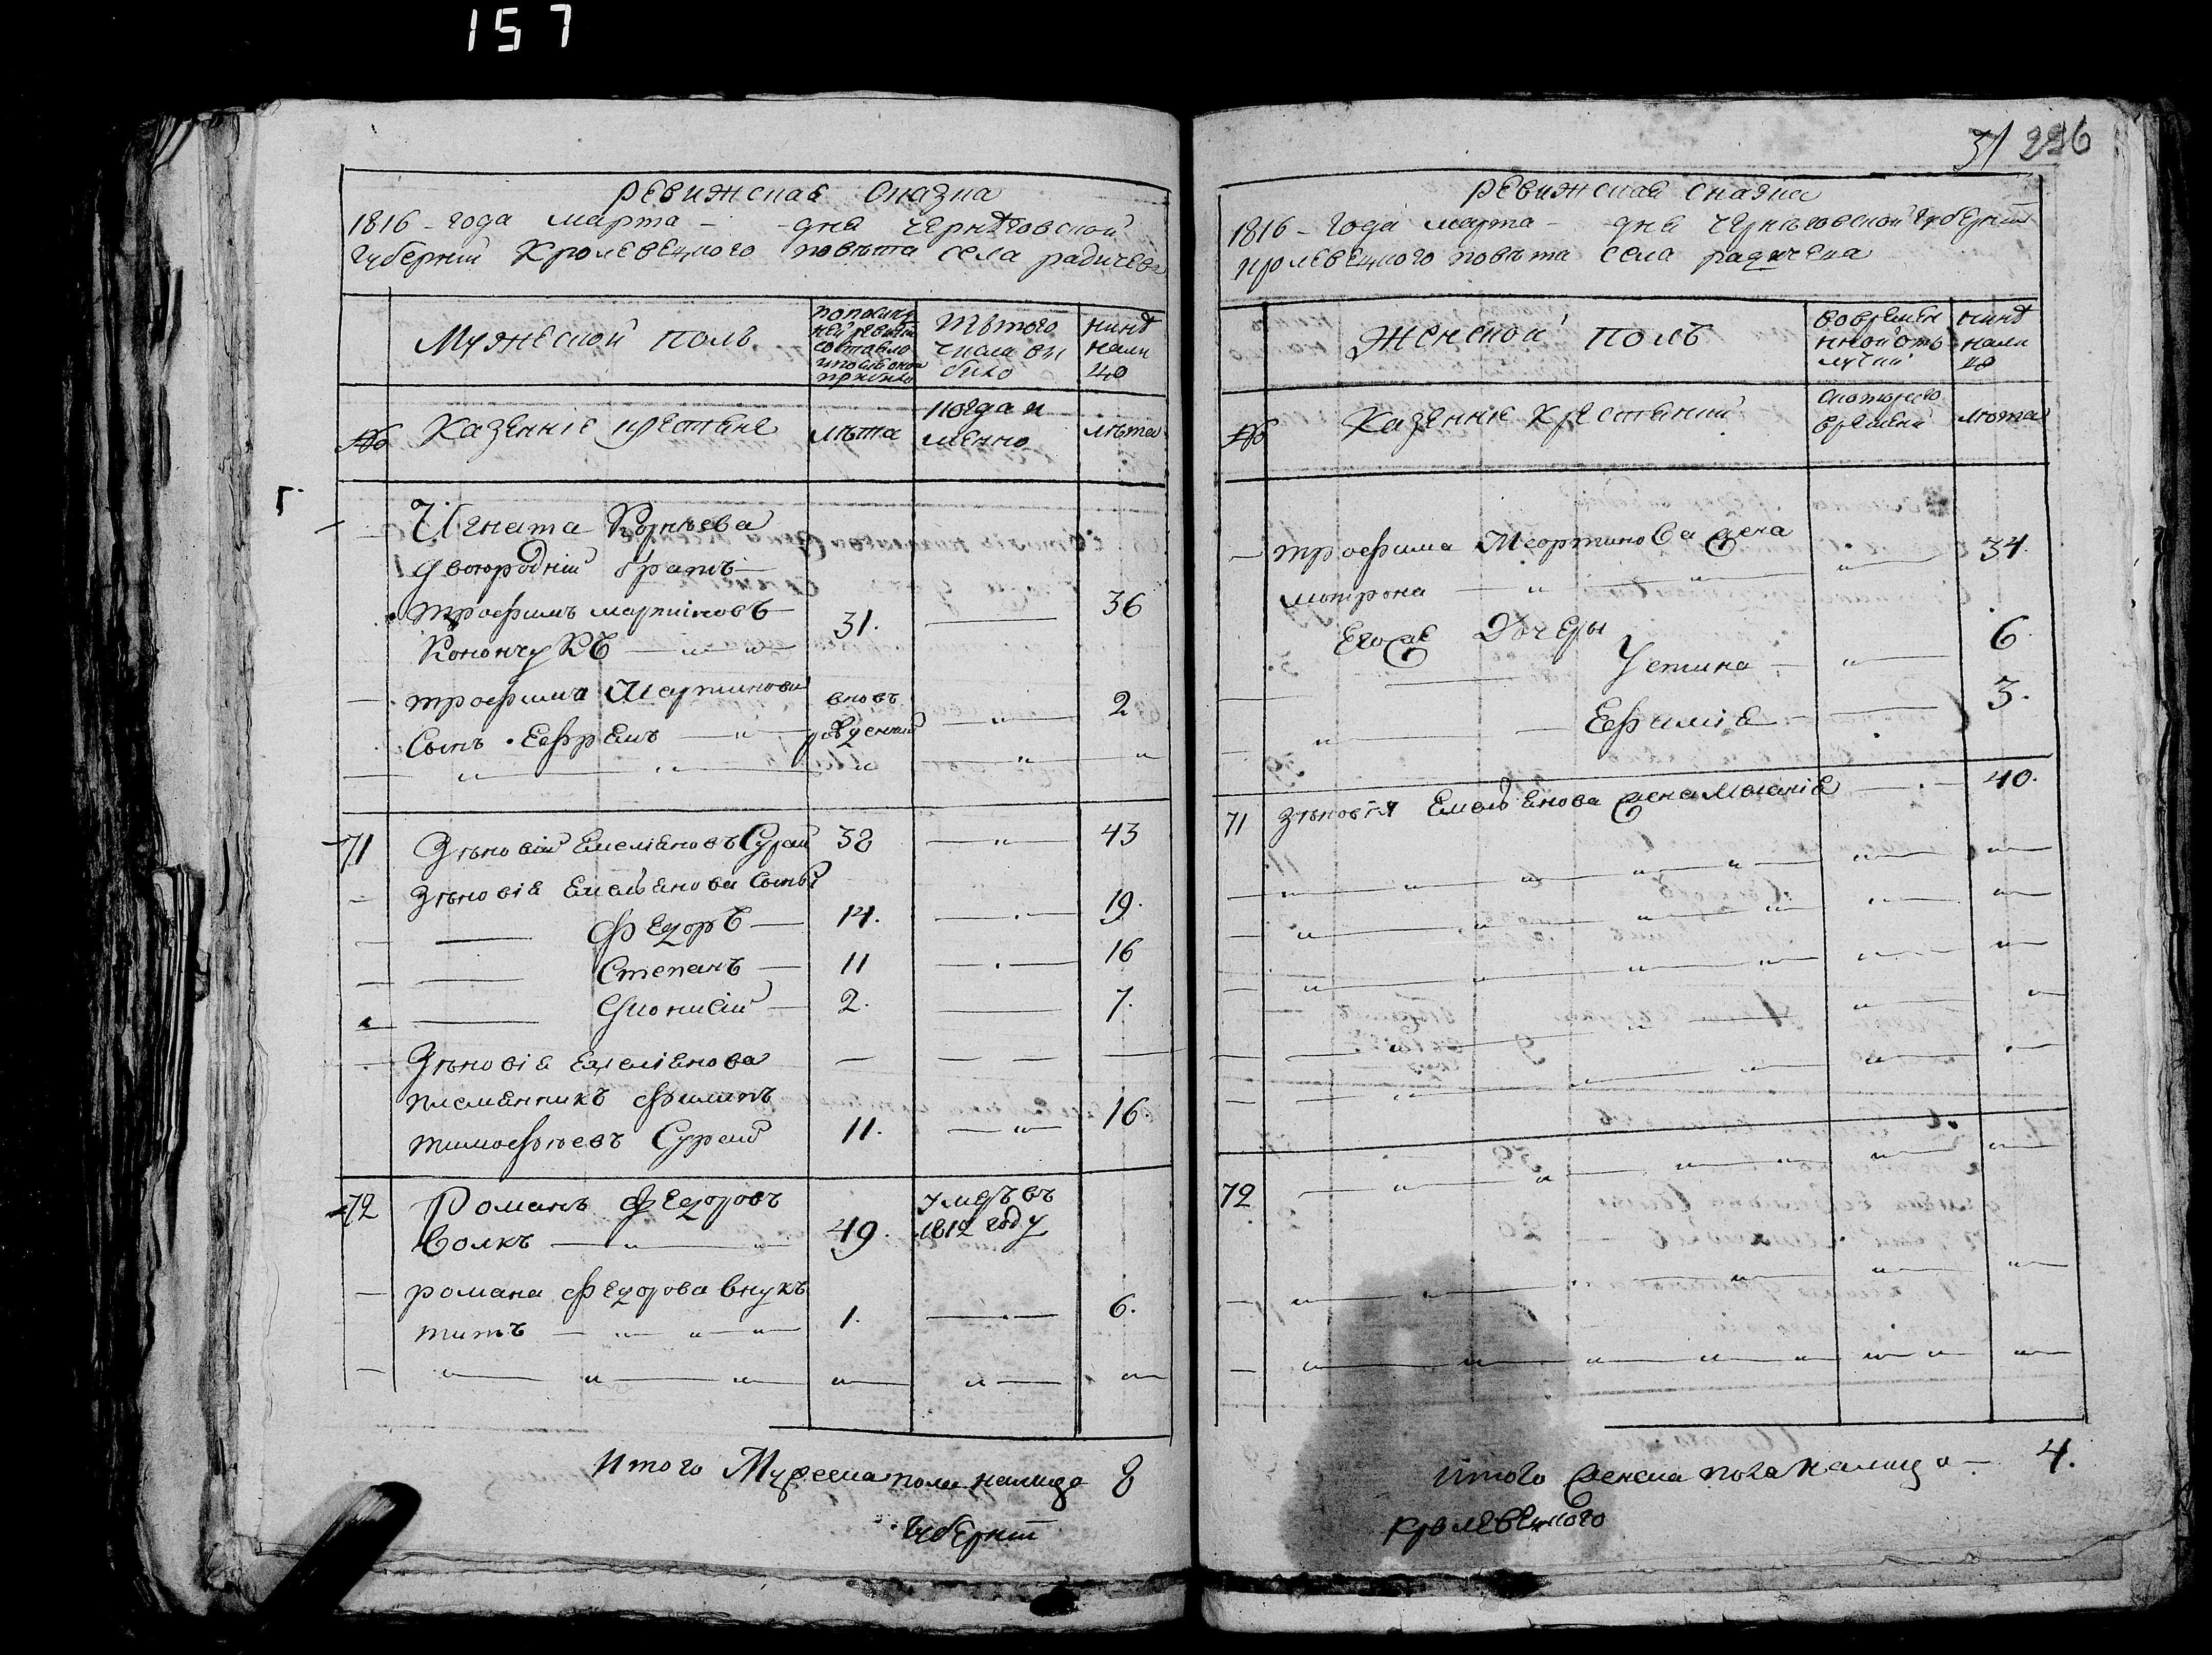 157
Ревижская Сказка
1816 - года марта - - дня Чернѣговской
губернїи Кролевецкого повѣта села радичева
Мужеской полъ
по последней ревизїи состояло и после оной прибыло
Изъ того числа выбыло
нинѣ налицо
№
Казеннїе крестяне
лѣта
когда именно
лѣта
Игната Корнѣева
двоюродній братъ
трофимъ мартиновъ
Конончукъ
31.
36
трофима Мартинова
сынъ Ефремъ
вновь рожденній
2
71
Зѣновій Емеліяновъ Сурай
38
43
Зѣновія Емельянова сыны
Федоръ
14.
19.
Степанъ
11
16
Дионисій
2.
7.
Зѣновія Емеліянова
племянникъ Филипъ
тимофѣевъ Сурай
11.
16
72
Романъ Федоровъ
Волкъ
49.
умеръ въ
1812 году
романа Федорова внукъ
титъ
1.
6.
Итого Мужеска пола налицо 8
губернїи
31 226
Ревижская сказка
1816 - Года марта - дня Чернѣговской губернїи
кролевецкого повѣта села радичева
Женской полъ
во временной отлучки
нинѣ налицо
№
Казеннїе Крестянки
с которого времени
лѣта
трофима Мартинова жена
мотрона
34.
Его же Дочеры
Устина
6.
Ефимія
3.
71
Зѣновія Емельянова жена Меланія
40.
72
Итого женска пола налицо 4.
кролевецкого